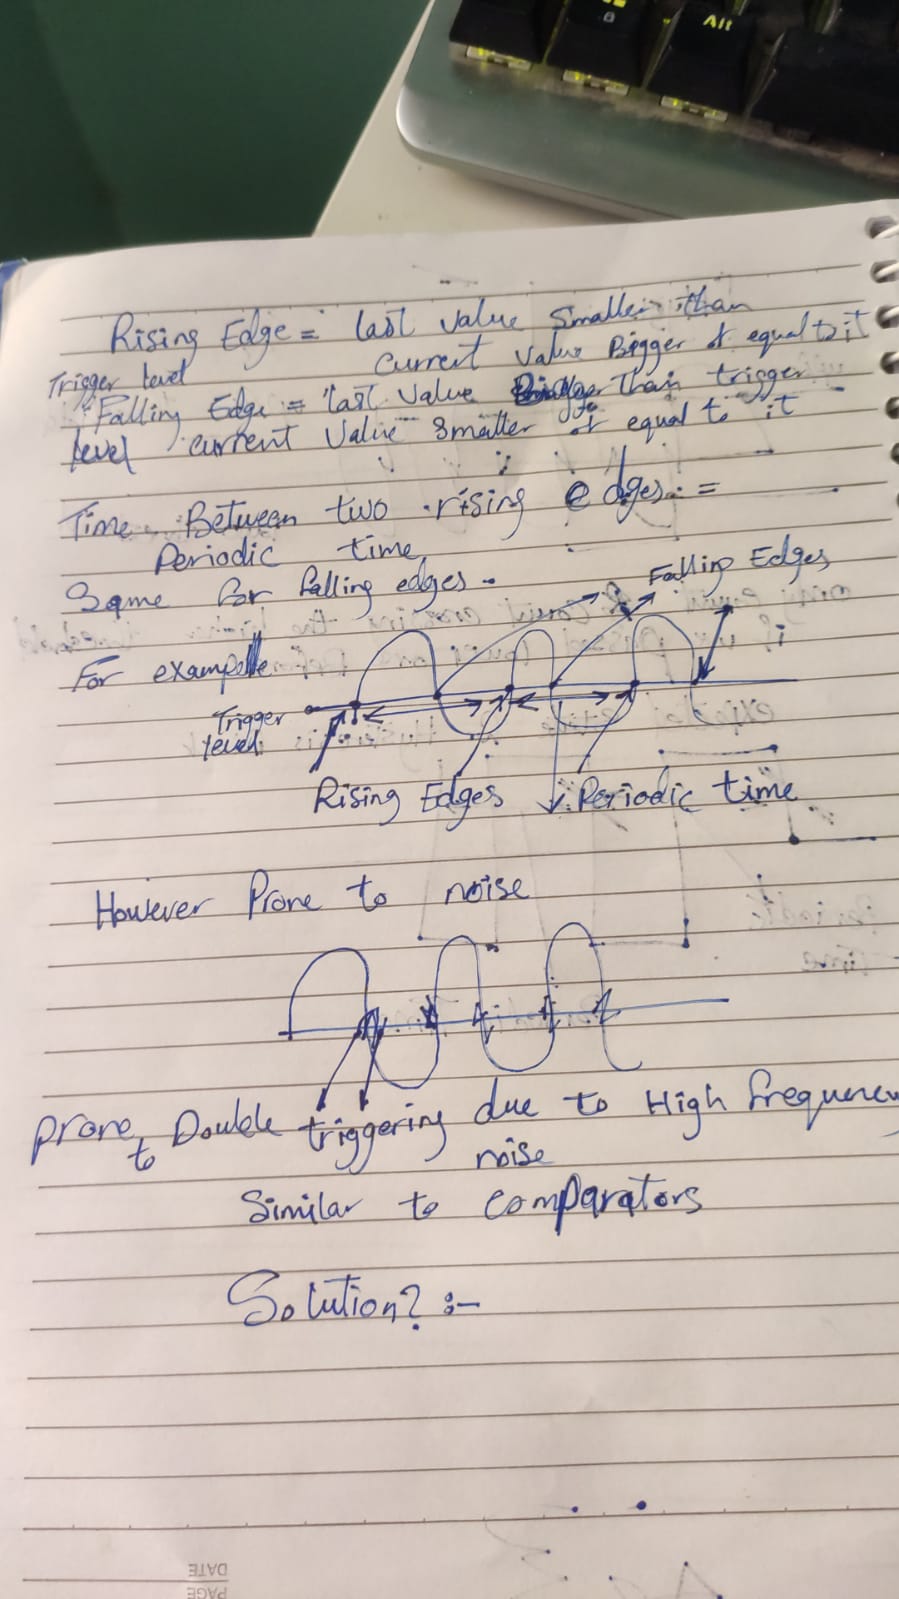 Alt
Rising Edge = last value smaller than
Trigger level current value Bigger or equal to it
Falling Edge = last value Bigger Than trigger
level current value smaller or equal to it
Time Between two rising edges =
Periodic time
Same for falling edges.
Falling Edges
For example
Trigger
level
Rising Edges Periodic time
However Prone to noise
prone to Double triggering due to High frequency
noise
Similar to comparators
Solution? :-
DATE
PAGE